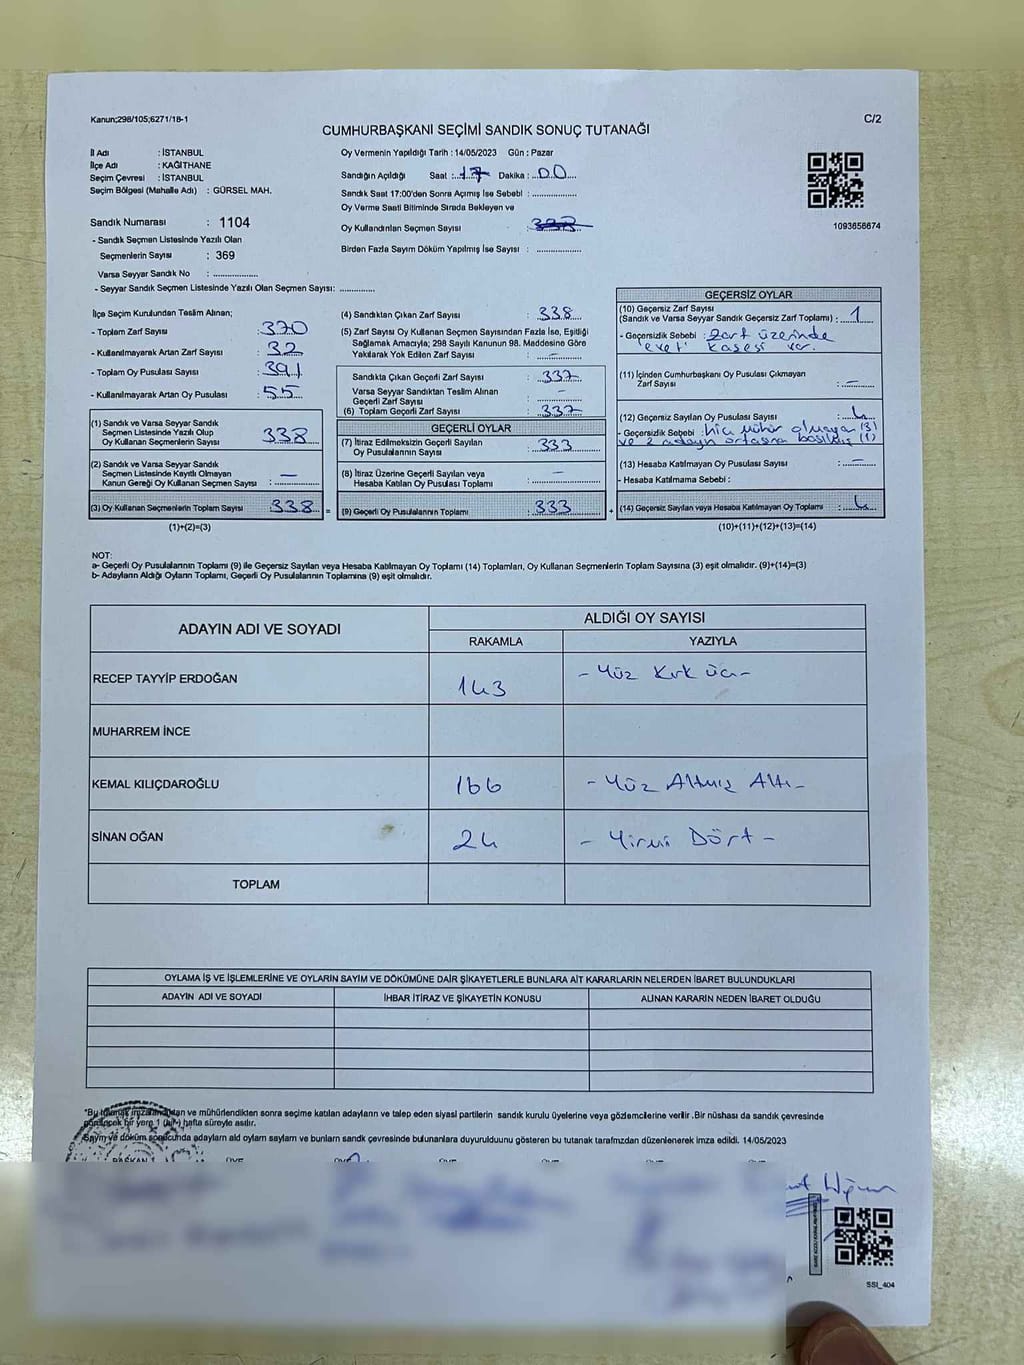 Kanun;298/105;6271/18-1
C/2
CUMHURBAŞKANI SEÇİMİ SANDIK SONUÇ TUTANAĞI
İl Adı : İSTANBUL
İlçe Adı : KAĞITHANE
Seçim Çevresi : İSTANBUL
Seçim Bölgesi (Mahalle Adı) : GÜRSEL MAH.
Sandık Numarası : 1104
- Sandık Seçmen Listesinde Yazılı Olan
Seçmenlerin Sayısı : 369
Varsa Seyyar Sandık No : ...............
- Seyyar Sandık Seçmen Listesinde Yazılı Olan Seçmen Sayısı: ............
Oy Vermenin Yapıldığı Tarih : 14/05/2023 Gün : Pazar
Sandığın Açıldığı Saat : 17 Dakika : 00
Sandık Saat 17:00'den Sonra Açımış İse Sebebi : ...............
Oy Verme Saati Bitiminde Sırada Bekleyen ve
Oy Kullandırılan Seçmen Sayısı :
Birden Fazla Sayım Döküm Yapılmış İse Sayısı : ...............
1093656674
İlçe Seçim Kurulundan Teslim Alınan;
- Toplam Zarf Sayısı : 370
- Kullanılmayarak Artan Zarf Sayısı : 32
- Toplam Oy Pusulası Sayısı : 391
- Kullanılmayarak Artan Oy Pusulası : 55
(1) Sandık ve Varsa Seyyar Sandık
Seçmen Listesinde Yazılı Olup
Oy Kullanan Seçmenlerin Sayısı : 338
(2) Sandık ve Varsa Seyyar Sandık
Seçmen Listesinde Kayıtlı Olmayan
Kanun Gereği Oy Kullanan Seçmen Sayısı : —
(3) Oy Kullanan Seçmenlerin Toplam Sayısı : 338 =
(1)+(2)=(3)
(4) Sandıktan Çıkan Zarf Sayısı : 338
(5) Zarf Sayısı Oy Kullanan Seçmen Sayısından Fazla İse, Eşitliği
Sağlamak Amacıyla; 298 Sayılı Kanunun 98. Maddesine Göre
Yakılarak Yok Edilen Zarf Sayısı : —
Sandıkta Çıkan Geçerli Zarf Sayısı : 337
Varsa Seyyar Sandıktan Teslim Alınan
Geçerli Zarf Sayısı : —
(6) Toplam Geçerli Zarf Sayısı : 337
GEÇERLİ OYLAR
(7) İtiraz Edilmeksizin Geçerli Sayılan
Oy Pusulasının Sayısı : 333
(8) İtiraz Üzerine Geçerli Sayılan veya
Hesaba Katılan Oy Pusulası Toplamı : —
(9) Geçerli Oy Pusulalarının Toplamı : 333 +
GEÇERSİZ OYLAR
(10) Geçersiz Zarf Sayısı
(Sandık ve Varsa Seyyar Sandık Geçersiz Zarf Toplamı) : 1
- Geçersizlik Sebebi : Zarf üzerinde
"evet" kaşesi var.
(11) İçinden Cumhurbaşkanı Oy Pusulası Çıkmayan
Zarf Sayısı : —
(12) Geçersiz Sayılan Oy Pusulası Sayısı : 4
- Geçersizlik Sebebi : hiç mühür olmaya (3)
ve 2 adayın ortasına basılmış (1)
(13) Hesaba Katılmayan Oy Pusulası Sayısı : —
- Hesaba Katılmama Sebebi :
(14) Geçersiz Sayılan veya Hesaba Katılmayan Oy Toplamı : 4
(10)+(11)+(12)+(13)=(14)
NOT:
a- Geçerli Oy Pusulalarının Toplamı (9) ile Geçersiz Sayılan veya Hesaba Katılmayan Oy Toplamı (14) Toplamları, Oy Kullanan Seçmenlerin Toplam Sayısına (3) eşit olmalıdır. (9)+(14)=(3)
b- Adayların Aldığı Oyların Toplamı, Geçerli Oy Pusulalarının Toplamına (9) eşit olmalıdır.
ADAYIN ADI VE SOYADI
ALDIĞI OY SAYISI
RAKAMLA YAZIYLA
RECEP TAYYİP ERDOĞAN 143 - Yüz Kırk üç -
MUHARREM İNCE
KEMAL KILIÇDAROĞLU 166 - Yüz Altmış Altı -
SİNAN OĞAN 24 - Yirmi Dört -
TOPLAM
OYLAMA İŞ VE İŞLEMLERİNE VE OYLARIN SAYIM VE DÖKÜMÜNE DAİR ŞİKAYETLERLE BUNLARA AİT KARARLARIN NELERDEN İBARET BULUNDUKLARI
ADAYIN ADI VE SOYADI İHBAR İTİRAZ VE ŞİKAYETİN KONUSU ALINAN KARARIN NEDEN İBARET OLDUĞU
*Bu tutanak imzalandıktan ve mühürlendikten sonra seçime katılan adayların ve talep eden siyasi partilerin sandık kurulu üyelerine veya gözlemcilerine verilir .Bir nüshası da sandık çevresinde
görülecek bir yere 1 (bir) hafta süreyle asılır.
Sayım ve döküm sonucunda adayların ald oyların sayların ve bunların sandık çevresinde bulunanlara duyurulduunu gösteren bu tutanak tarafmzdan düzenlenerek imza edildi. 14/05/2023
BAŞKAN ÜYE ÜYE ÜYE ÜYE ÜYE
SSI_404